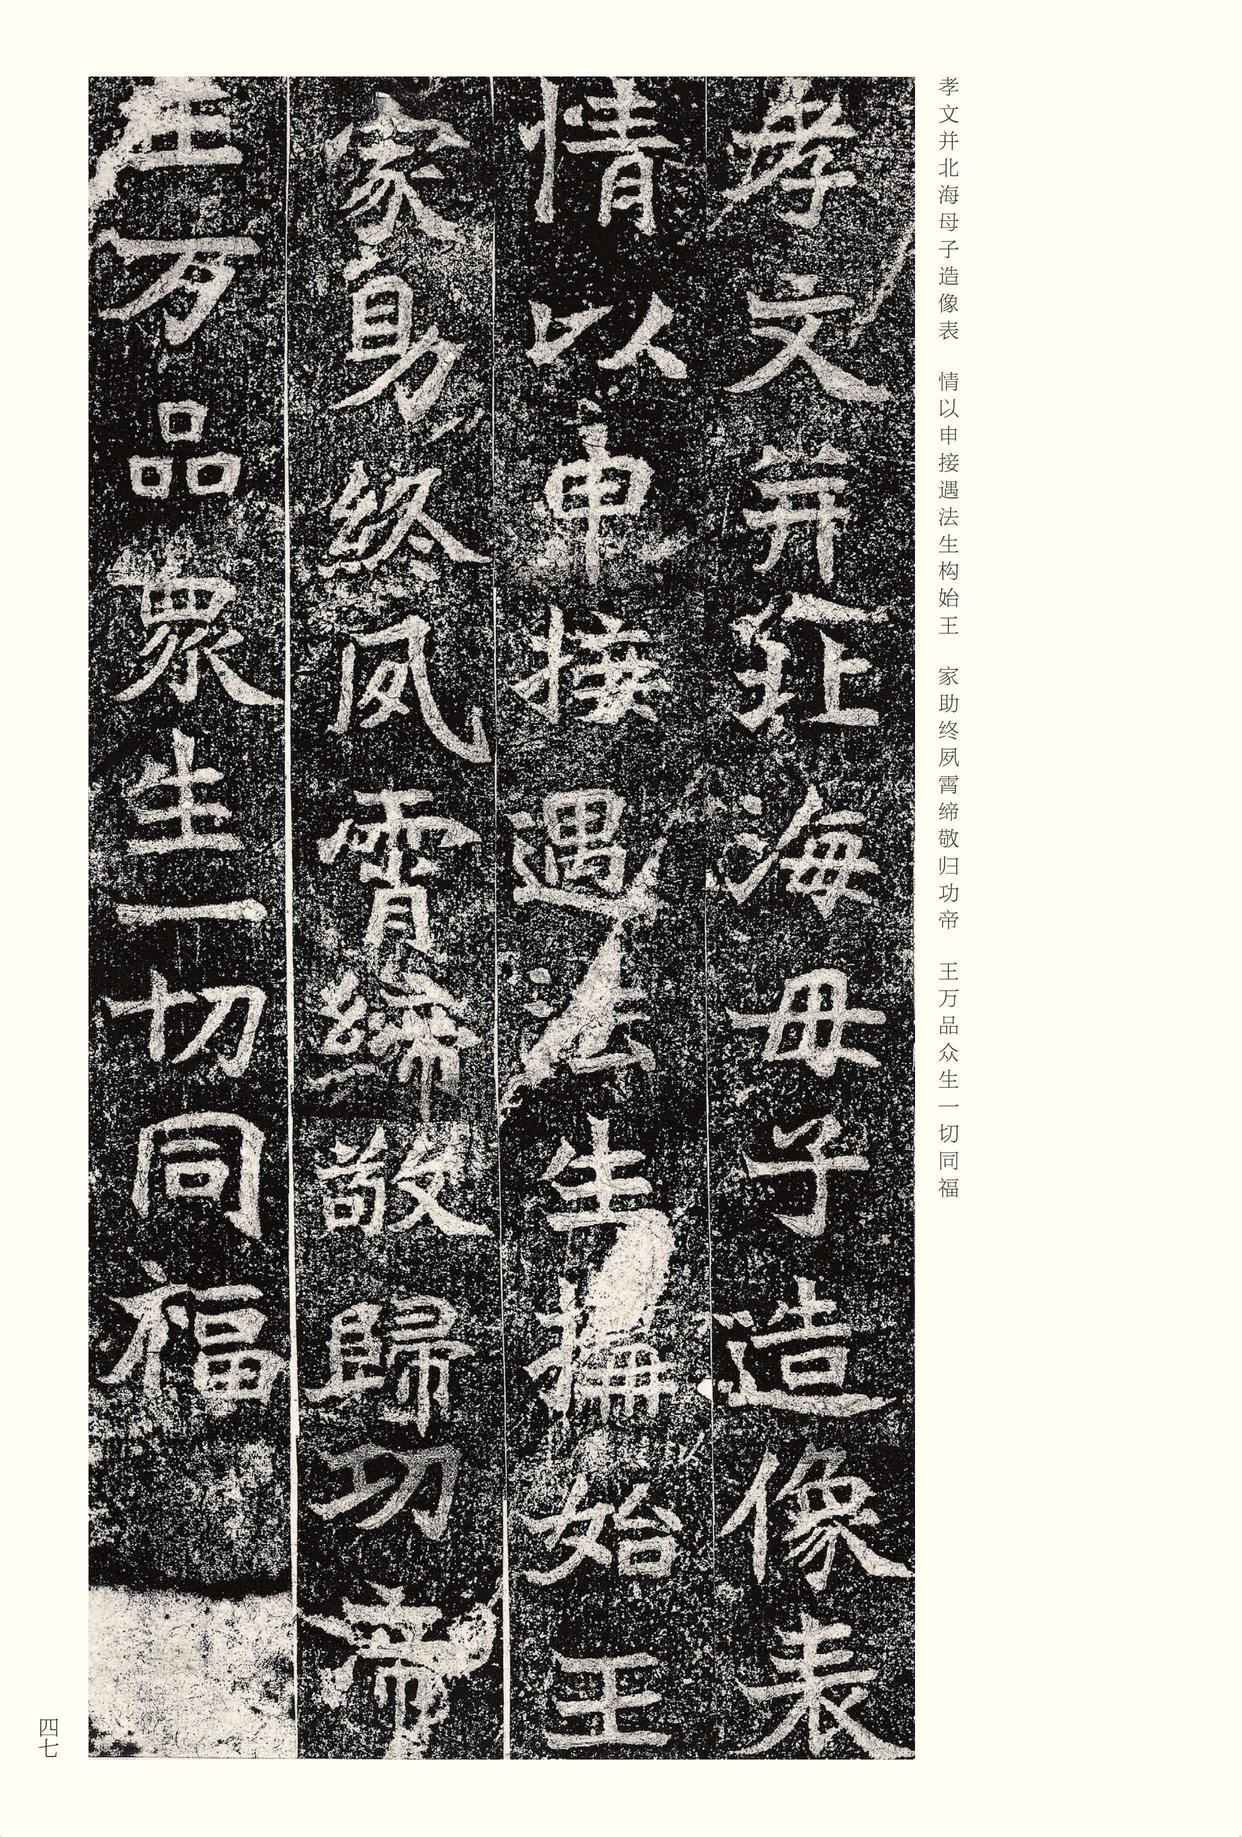 孝文并北海母子造像表　情以申接遇法生构始王　家助终夙霄缔敬归功帝　王万品众生一切同福
孝文并北海母子造像表
情以申接遇法生構始王
家助終夙霄締敬歸功帝
王万品眾生一切同福
四七